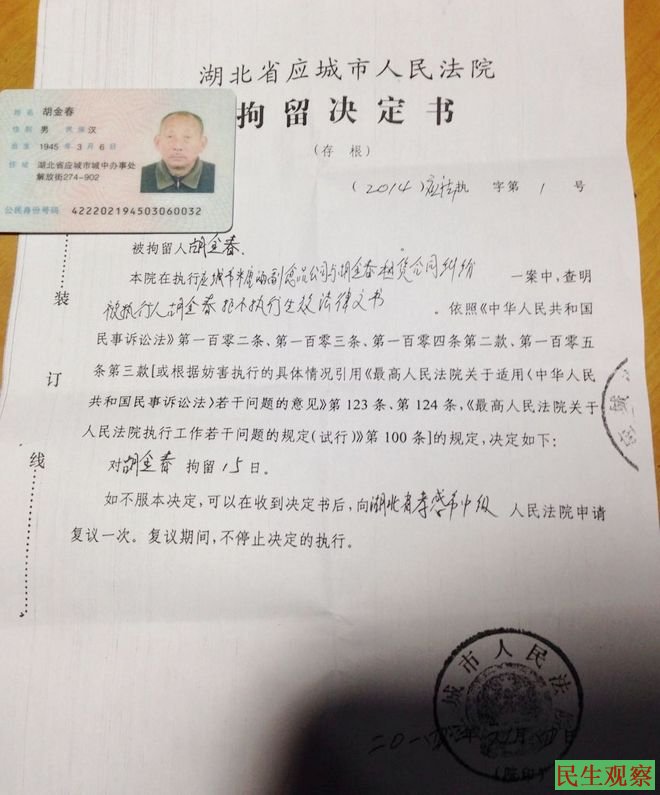 湖北省应城市人民法院
拘留决定书
(存根)
姓名 胡金春
性别 男 民族 汉
出生 1945年3月6日
住址 湖北省应城市城中办事处
解放街274-902
公民身份号码 422202194503060032
(2014)应法执 字第 1 号
被拘留人胡金春.
本院在执行应城市 副食品公司与胡金春租赁合同纠纷 一案中,查明
被执行人胡金春拒不执行生效法律文书 。依照《中华人民共和国
民事诉讼法》第一百零二条、第一百零三条、第一百零四条第二款、第一百零五
条第三款[或根据妨害执行的具体情况引用《最高人民法院关于适用〈中华人民
共和国民事诉讼法〉若干问题的意见》第123条、第124条,《最高人民法院关于
人民法院执行工作若干问题的规定(试行)》第100条]的规定,决定如下:
对胡金春 拘留15日。
如不服本决定,可以在收到决定书后,向湖北省孝感市中级 人民法院申请
复议一次。复议期间,不停止决定的执行。
装
订
线
城市人民法
(院印)
民生观察